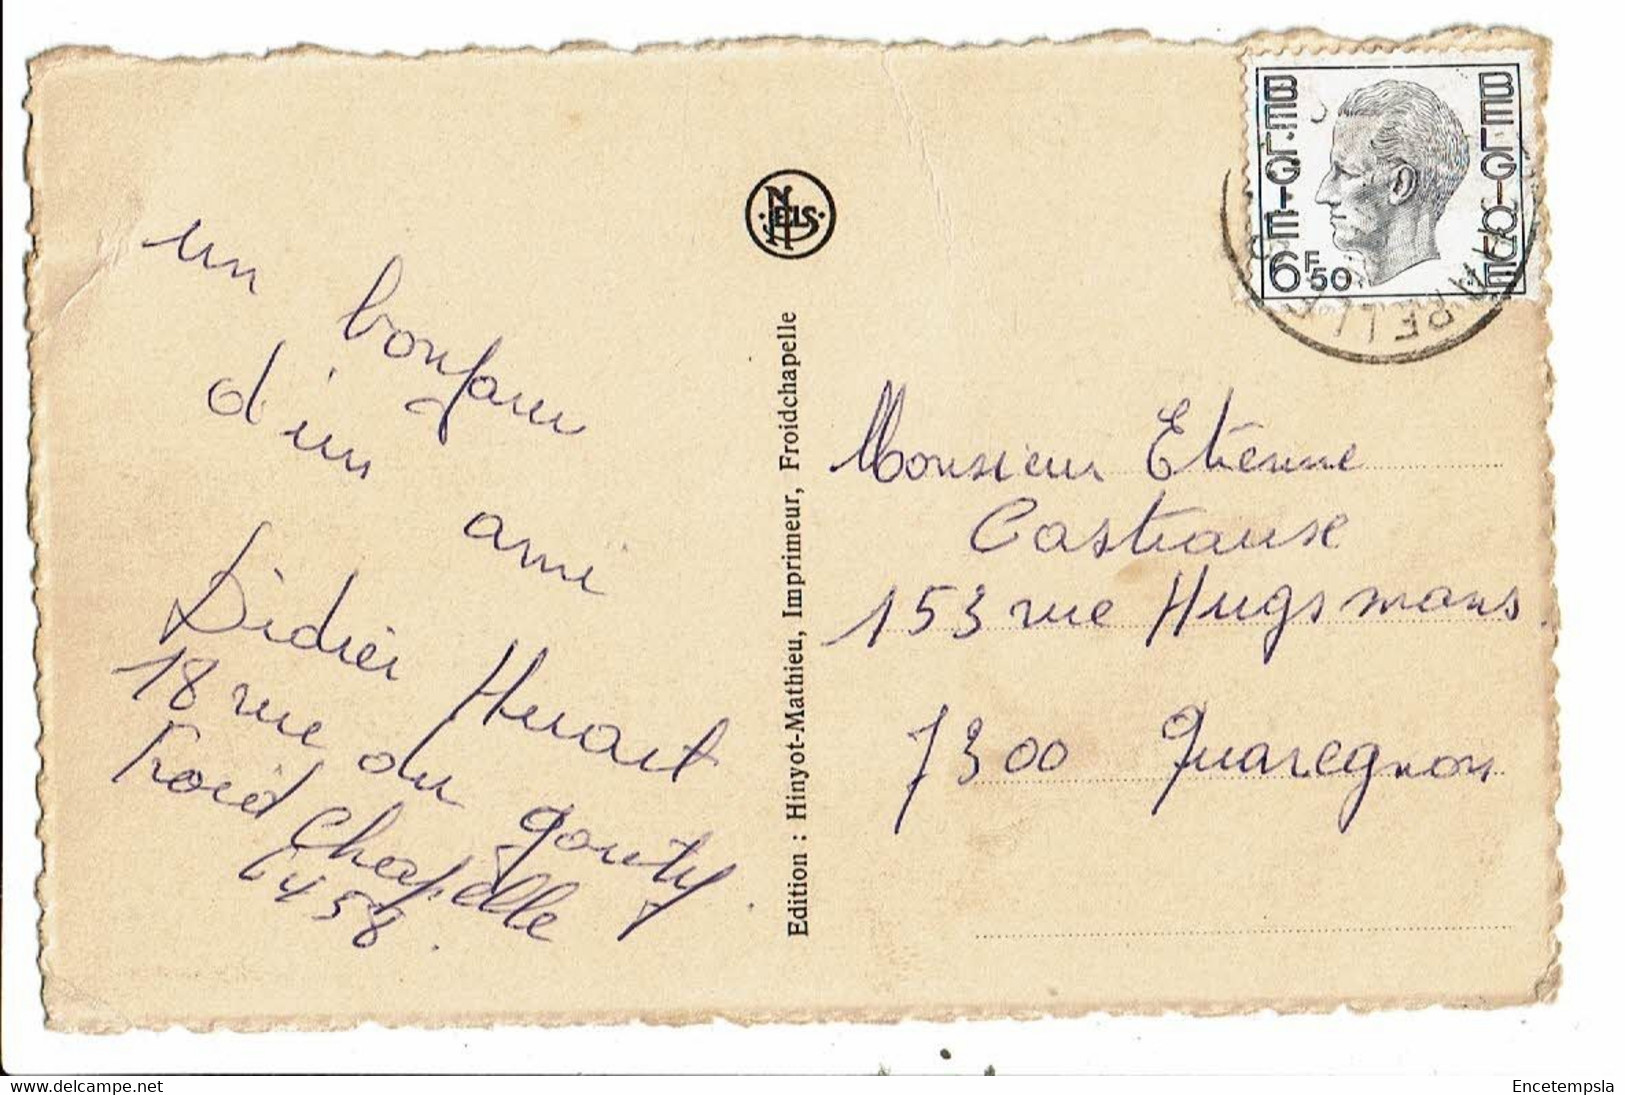 un bonjour
d'un ami
Didier Huart
18 rue du gouty
Froid Chapelle
6458.
NELS
Edition : Hinyot-Mathieu, Imprimeur, Froidchapelle
BELGIE
BELGIQUE
6F50
Monsieur Etienne
Castiause
153 rue Hugsmans
7300 Quaregnon
www.delcampe.net
Encetempsla